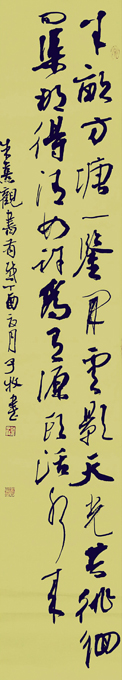 半畝方塘一鑒開雲影天光共徘徊
問渠那得清如許為有源頭活水來
朱熹觀書有感丁酉月牧書